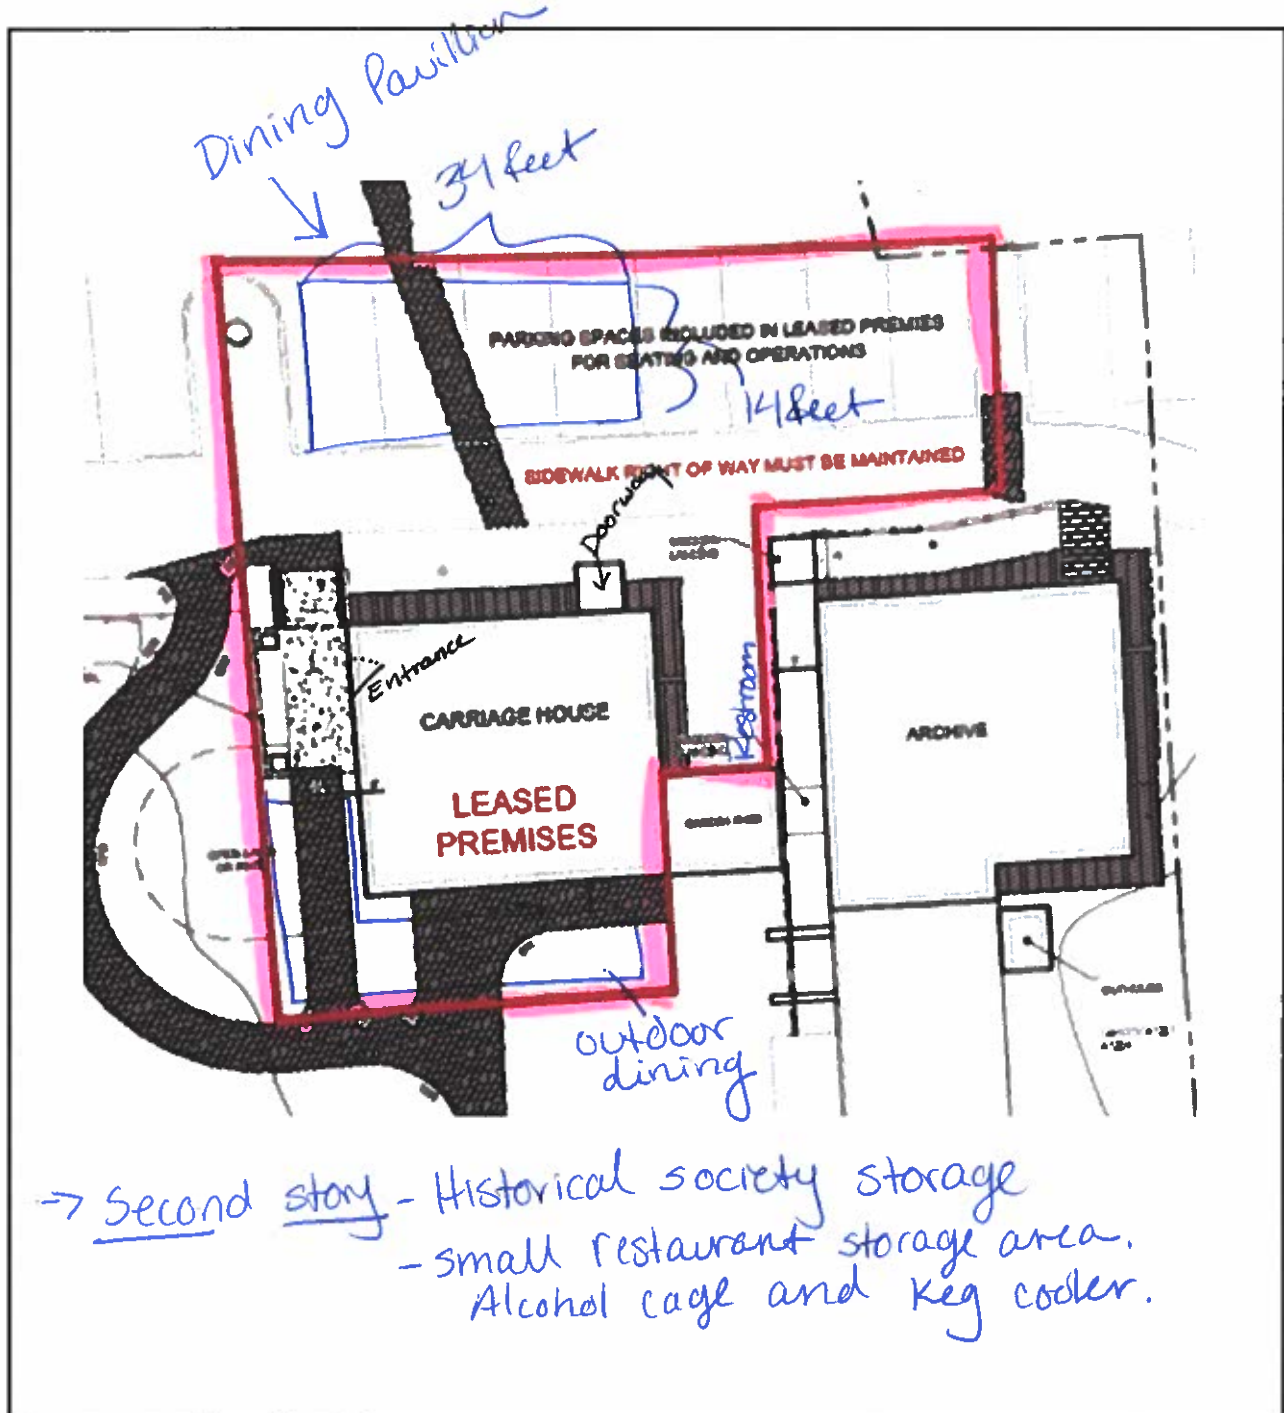 Dining Pavillion
34 feet
PARKING SPACES INCLUDED IN LEASED PREMIES
FOR SEATING AND OPERATIONS
14 feet
SIDEWALK RIGHT OF WAY MUST BE MAINTAINED
Doorway
Entrance
Restroom
CARRIAGE HOUSE
ARCHIVE
LEASED
PREMISES
GARDEN SHED
outdoor
dining
-> Second story - Historical society storage
- small restaurant storage area.
Alcohol cage and keg cooler.